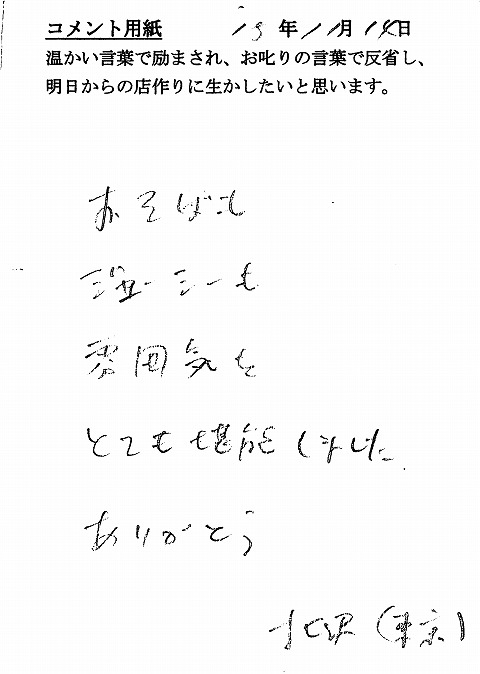 コメント用紙 19年11月14日
温かい言葉で励まされ、お叱りの言葉で反省し、
明日からの店作りに生かしたいと思います。
おそばも
ジューシーも
雰囲気も
とても堪能しました
ありがとう
北沢（東京）